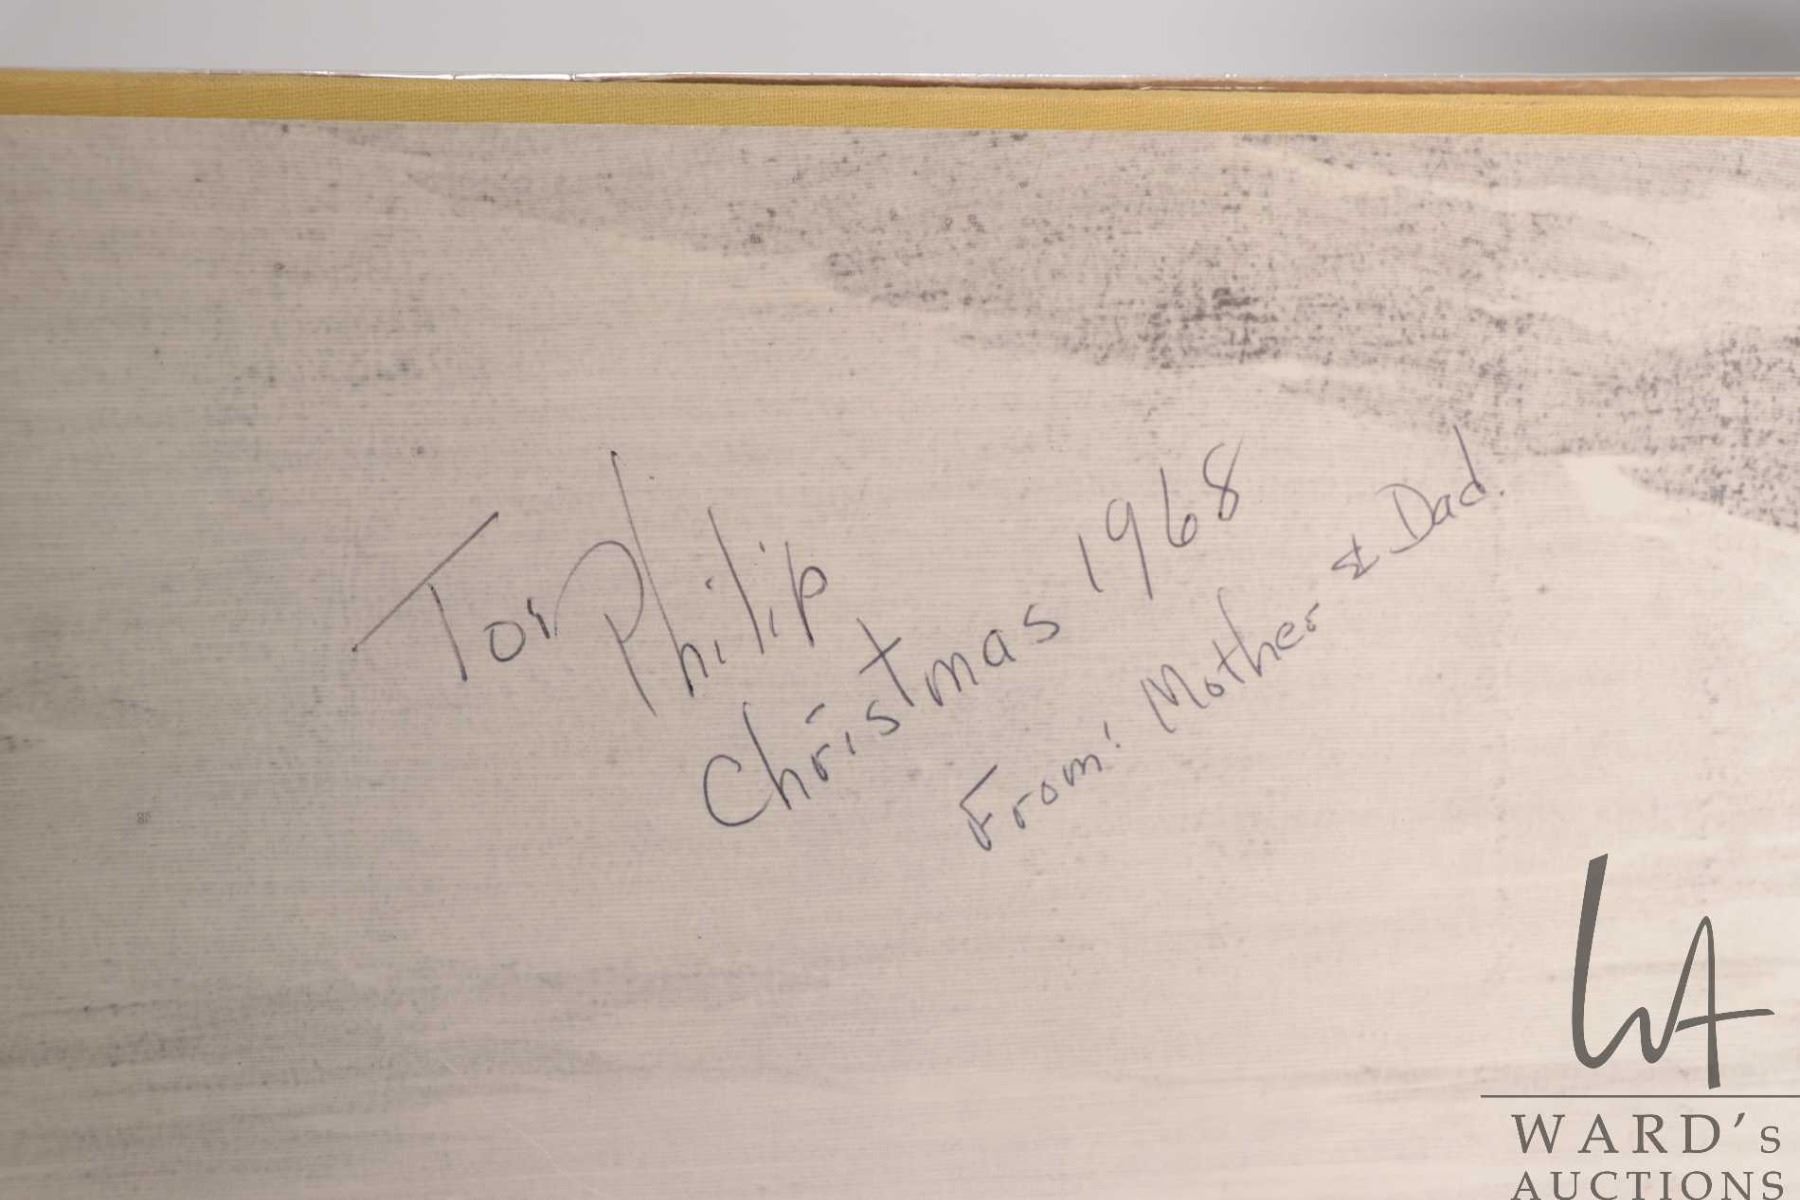 To: Philip
Christmas 1968
From: Mother & Dad.
WA
WARD's
AUCTIONS